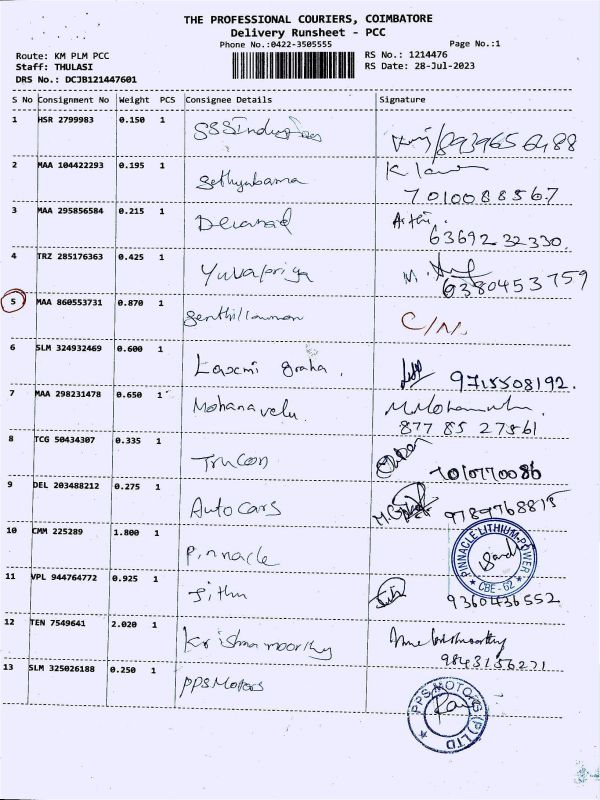 THE PROFESSIONAL COURIERS, COIMBATORE
Delivery Runsheet - PCC
Phone No.:0422-3505555
Page No.:1
Route: KM PLM PCC
Staff: THULASI
DRS No.: DCJB121447601
RS No.: 1214476
RS Date: 28-Jul-2023
S No Consignment No Weight PCS Consignee Details Signature
1 HSR 2799983 0.150 1 SSS Industries
8939656488
2 MAA 104422293 0.195 1 Sethyabama
7010088567
3 MAA 295856584 0.215 1 Devanand
63692 32330.
4 TRZ 285176363 0.425 1 Yuvapriya M.
6380453759
5 MAA 860553731 0.870 1 Senthilkumar C/N.
6 SLM 324932469 0.600 1 Laxmi graha. 9715508192.
7 MAA 298231478 0.650 1 Mohanavelu
877 85 27561
8 TCG 50434307 0.335 1 Trucon 7010770086
9 DEL 203488212 0.275 1 Auto Cars 9789768815
10 CMM 225289 1.800 1 Pinnacle
PINNACLE LITHIUM POWER
CBE - 62
11 VPL 944764772 0.925 1 Jithu 9360436552
12 TEN 7549641 2.020 1 Krishnamoorthy
9843156271
13 SLM 325026188 0.250 1 PPS Motors
PPS MOTORS (P) LTD